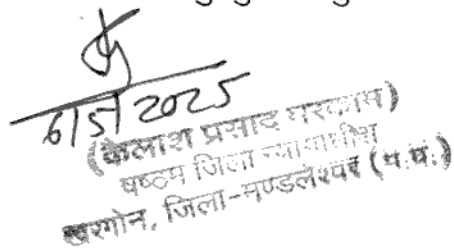 6/5/2025
(कैलाश प्रसाद मरकाम)
षष्ठम जिला न्यायाधीश
खरगोन, जिला-मण्डलेश्वर (म.प्र.)